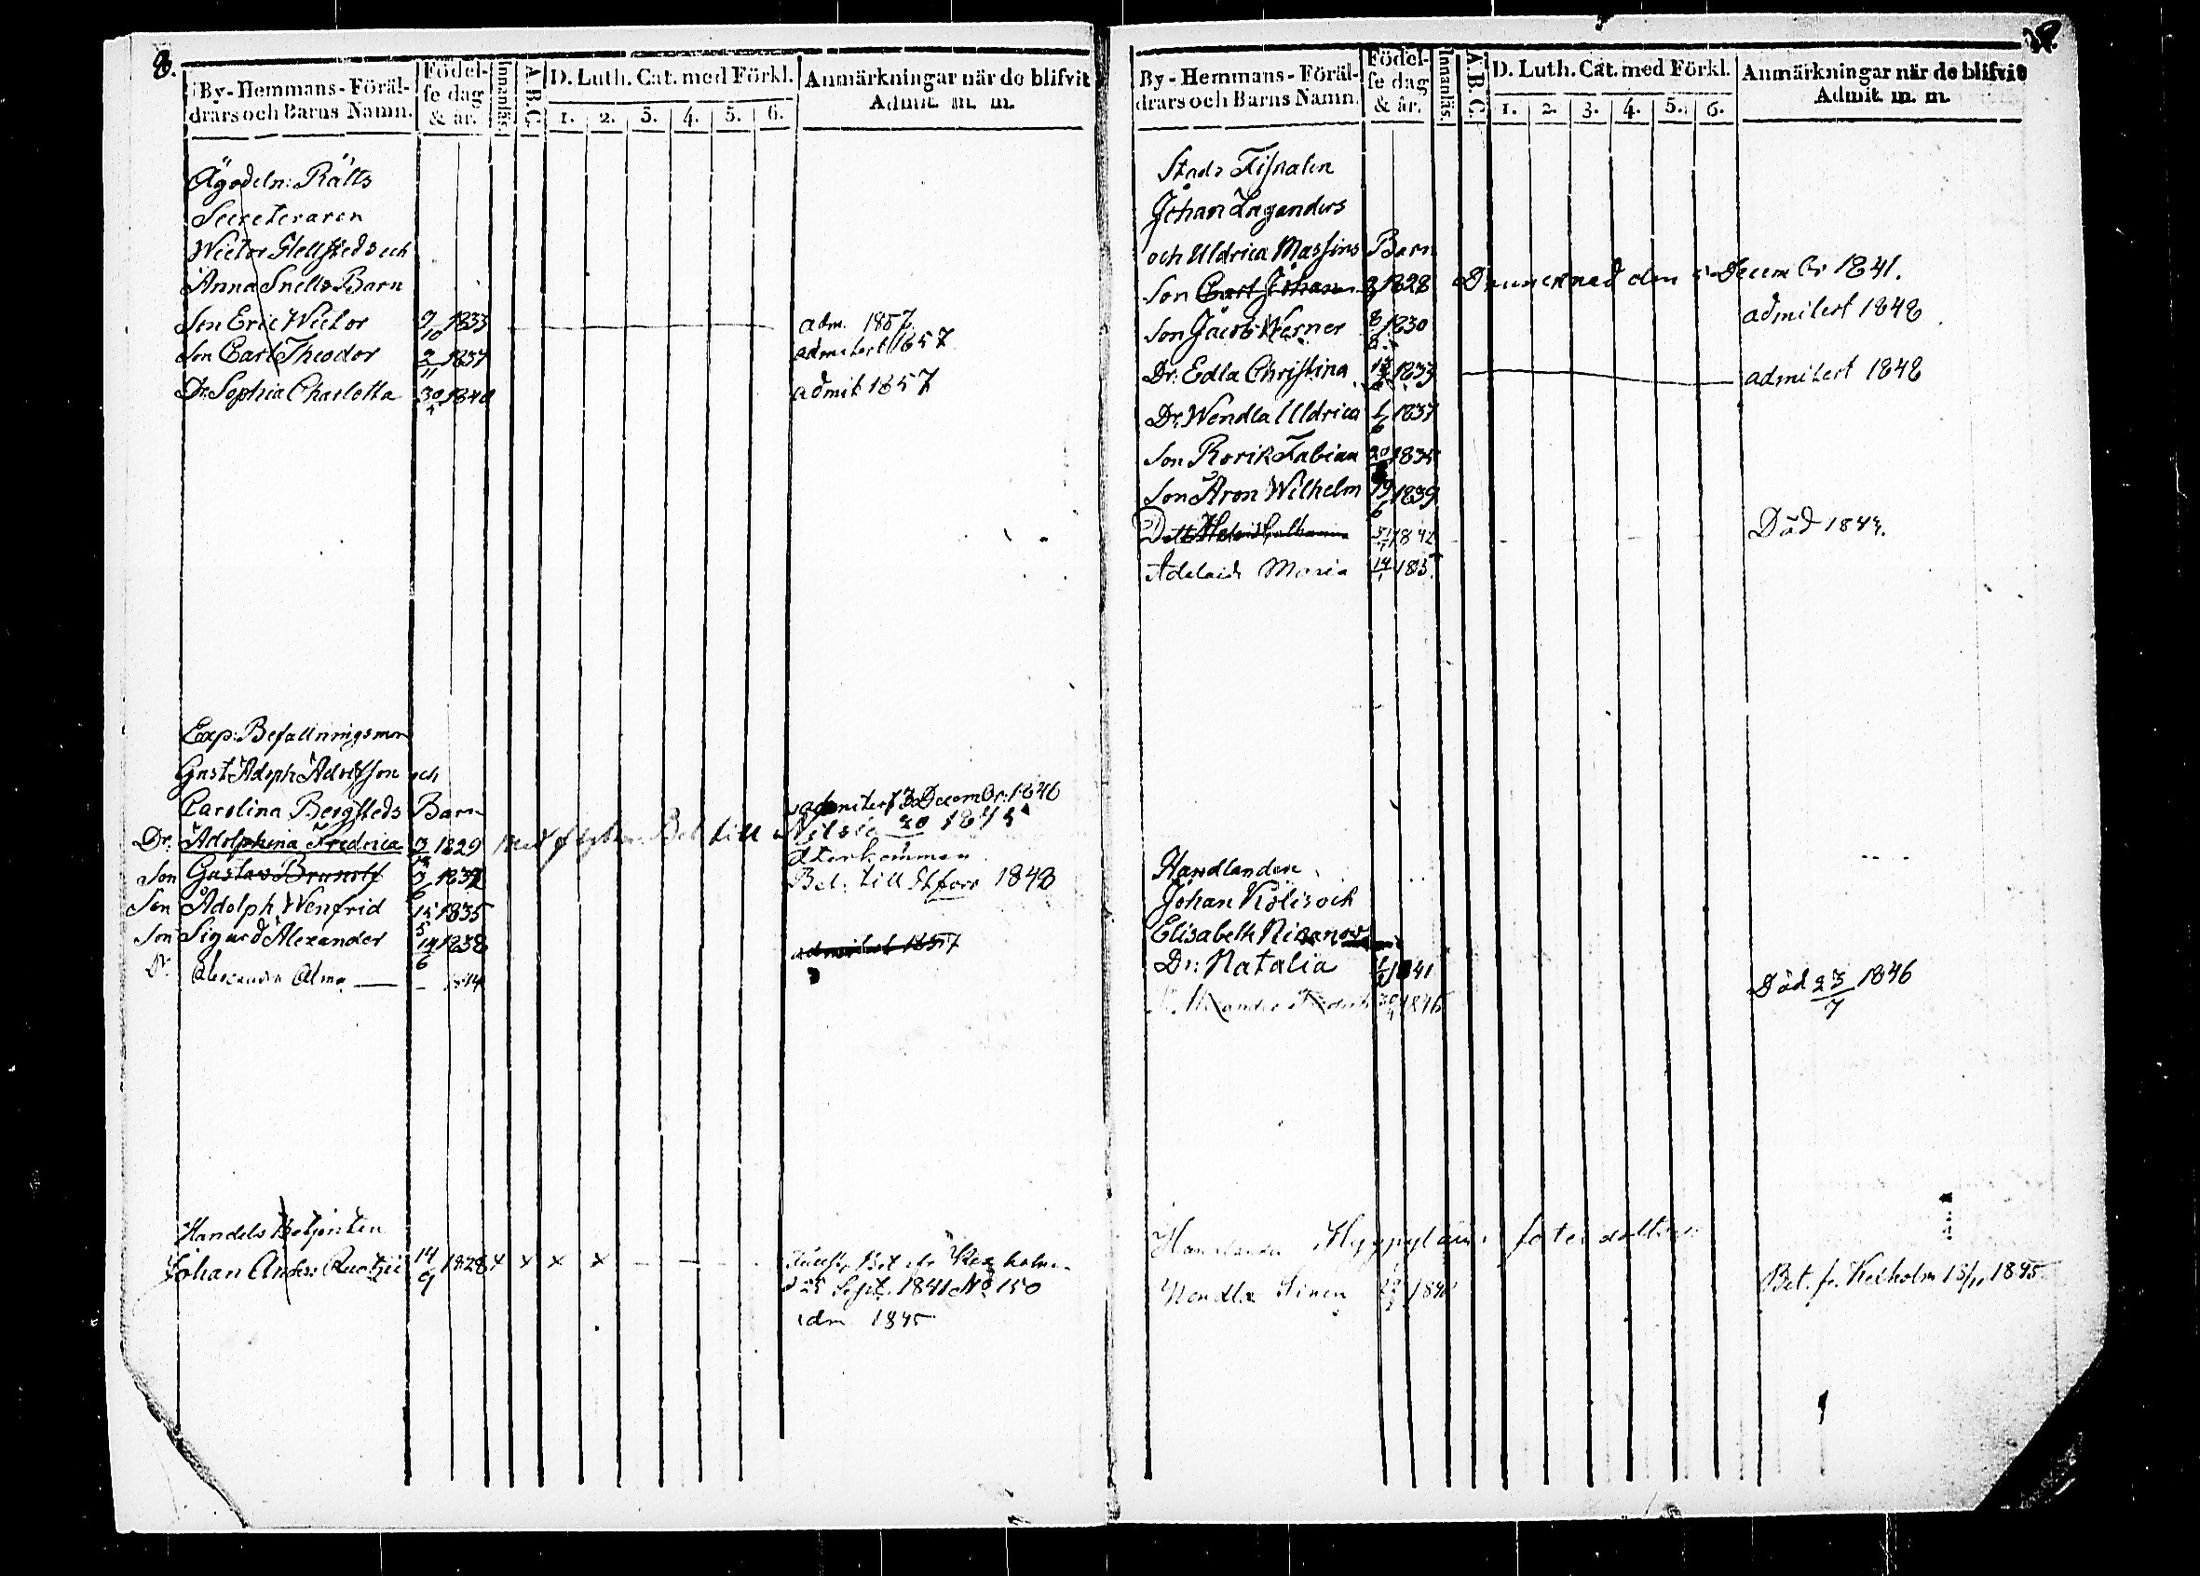 8.
By-Hemmans-Föräl-
drars och Barns Namn.
Födel-
se dag
& år.
Innanläs.
A.B.C.
D. Luth. Cat. med Förkl.
1. 2. 3. 4. 5. 6.
Anmärkningar när de blifvit
Admit. m. m.
Ägodeln: Rätts
Secreteraren
Wictor Hellsteds och
Anna Snells Barn
Son Eric Wictor 9/10 1833 adm. 1857.
Son Carl Theodor 2/11 1837 admitert 1857
Dr. Sophia Charlotta 30 1840 admit 1857
Exp: Befallningsman
Gust Adoph Adolfson och
Carolina Bergsteds Barn admitert 3 Decembr: 1846
Dr. Adolphina Fredrica 1829 Bet till Nilsiä 20 1845
återkommen
Son Gustav 1832 Bet: till 1843
Son Adolph Wenfrid 15/5 1835
Son Sigurd Alexander 14/6 1838 admitert 1857
Dr. Alexandra Alma — – 1844
Handels Betjenten
Johan Anders 14/9 1828 x x x x – – – Bet. fr. Kexholm
d 25 Sept. 1841 No 150
adm 1845
By-Hemmans-Föräl-
drars och Barns Namn.
Födel-
se dag
& år.
Innanläs.
A.B.C.
D. Luth. Cat. med Förkl.
1. 2. 3. 4. 5. 6.
Anmärkningar när de blifvit
Admit. m. m.
Stads Fiskalen
Johan Laganders
och Uldrica Massins Barn
Son Carl Johan 1828 Drunknad den Decembr 1841.
Son Jacob Werner 1830 admitert 1848
Dr. Edla Christina 1833 admitert 1848
Dr. Wendla Uldrica 1/6 1837
Son Rorik Fabian 20 1835
Son Aron Wilhelm 19/6 1839
Dott 31/7 1842 Död 1844.
Adelaide Maria 14/1 185
Handlanden
Johan Kölis och
Elisabeth
Dr: Natalia 1841
Alexander 1845 Död 23/7 1846
Handlanden foster dotter
Wendla Sinen 184 Bet. fr. Kexholm 15/11 1845